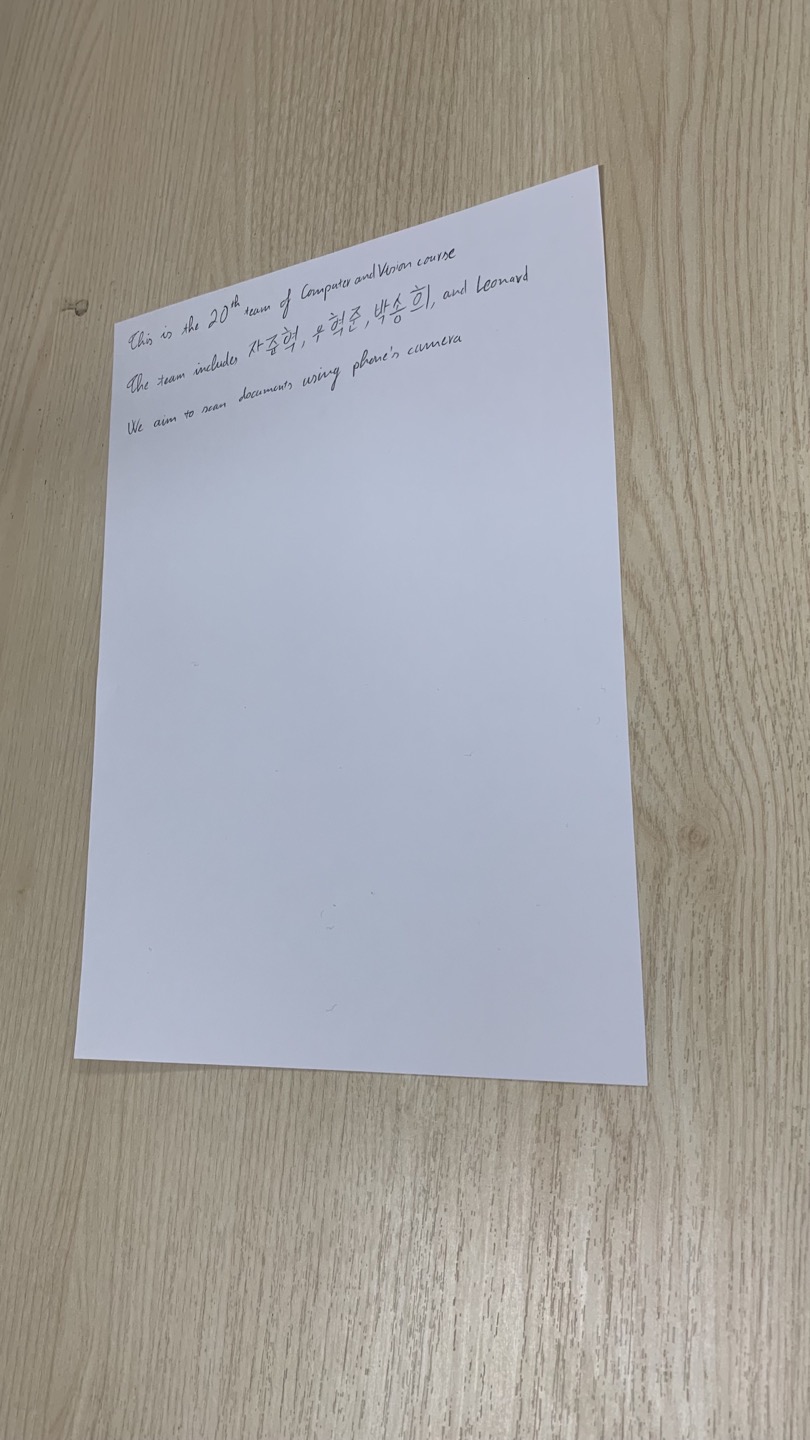 This is the 20th team of Computer and Vision course
The team includes 자준혁, 우혁준, 박송희, and Leonard
We aim to scan documents using phone's camera